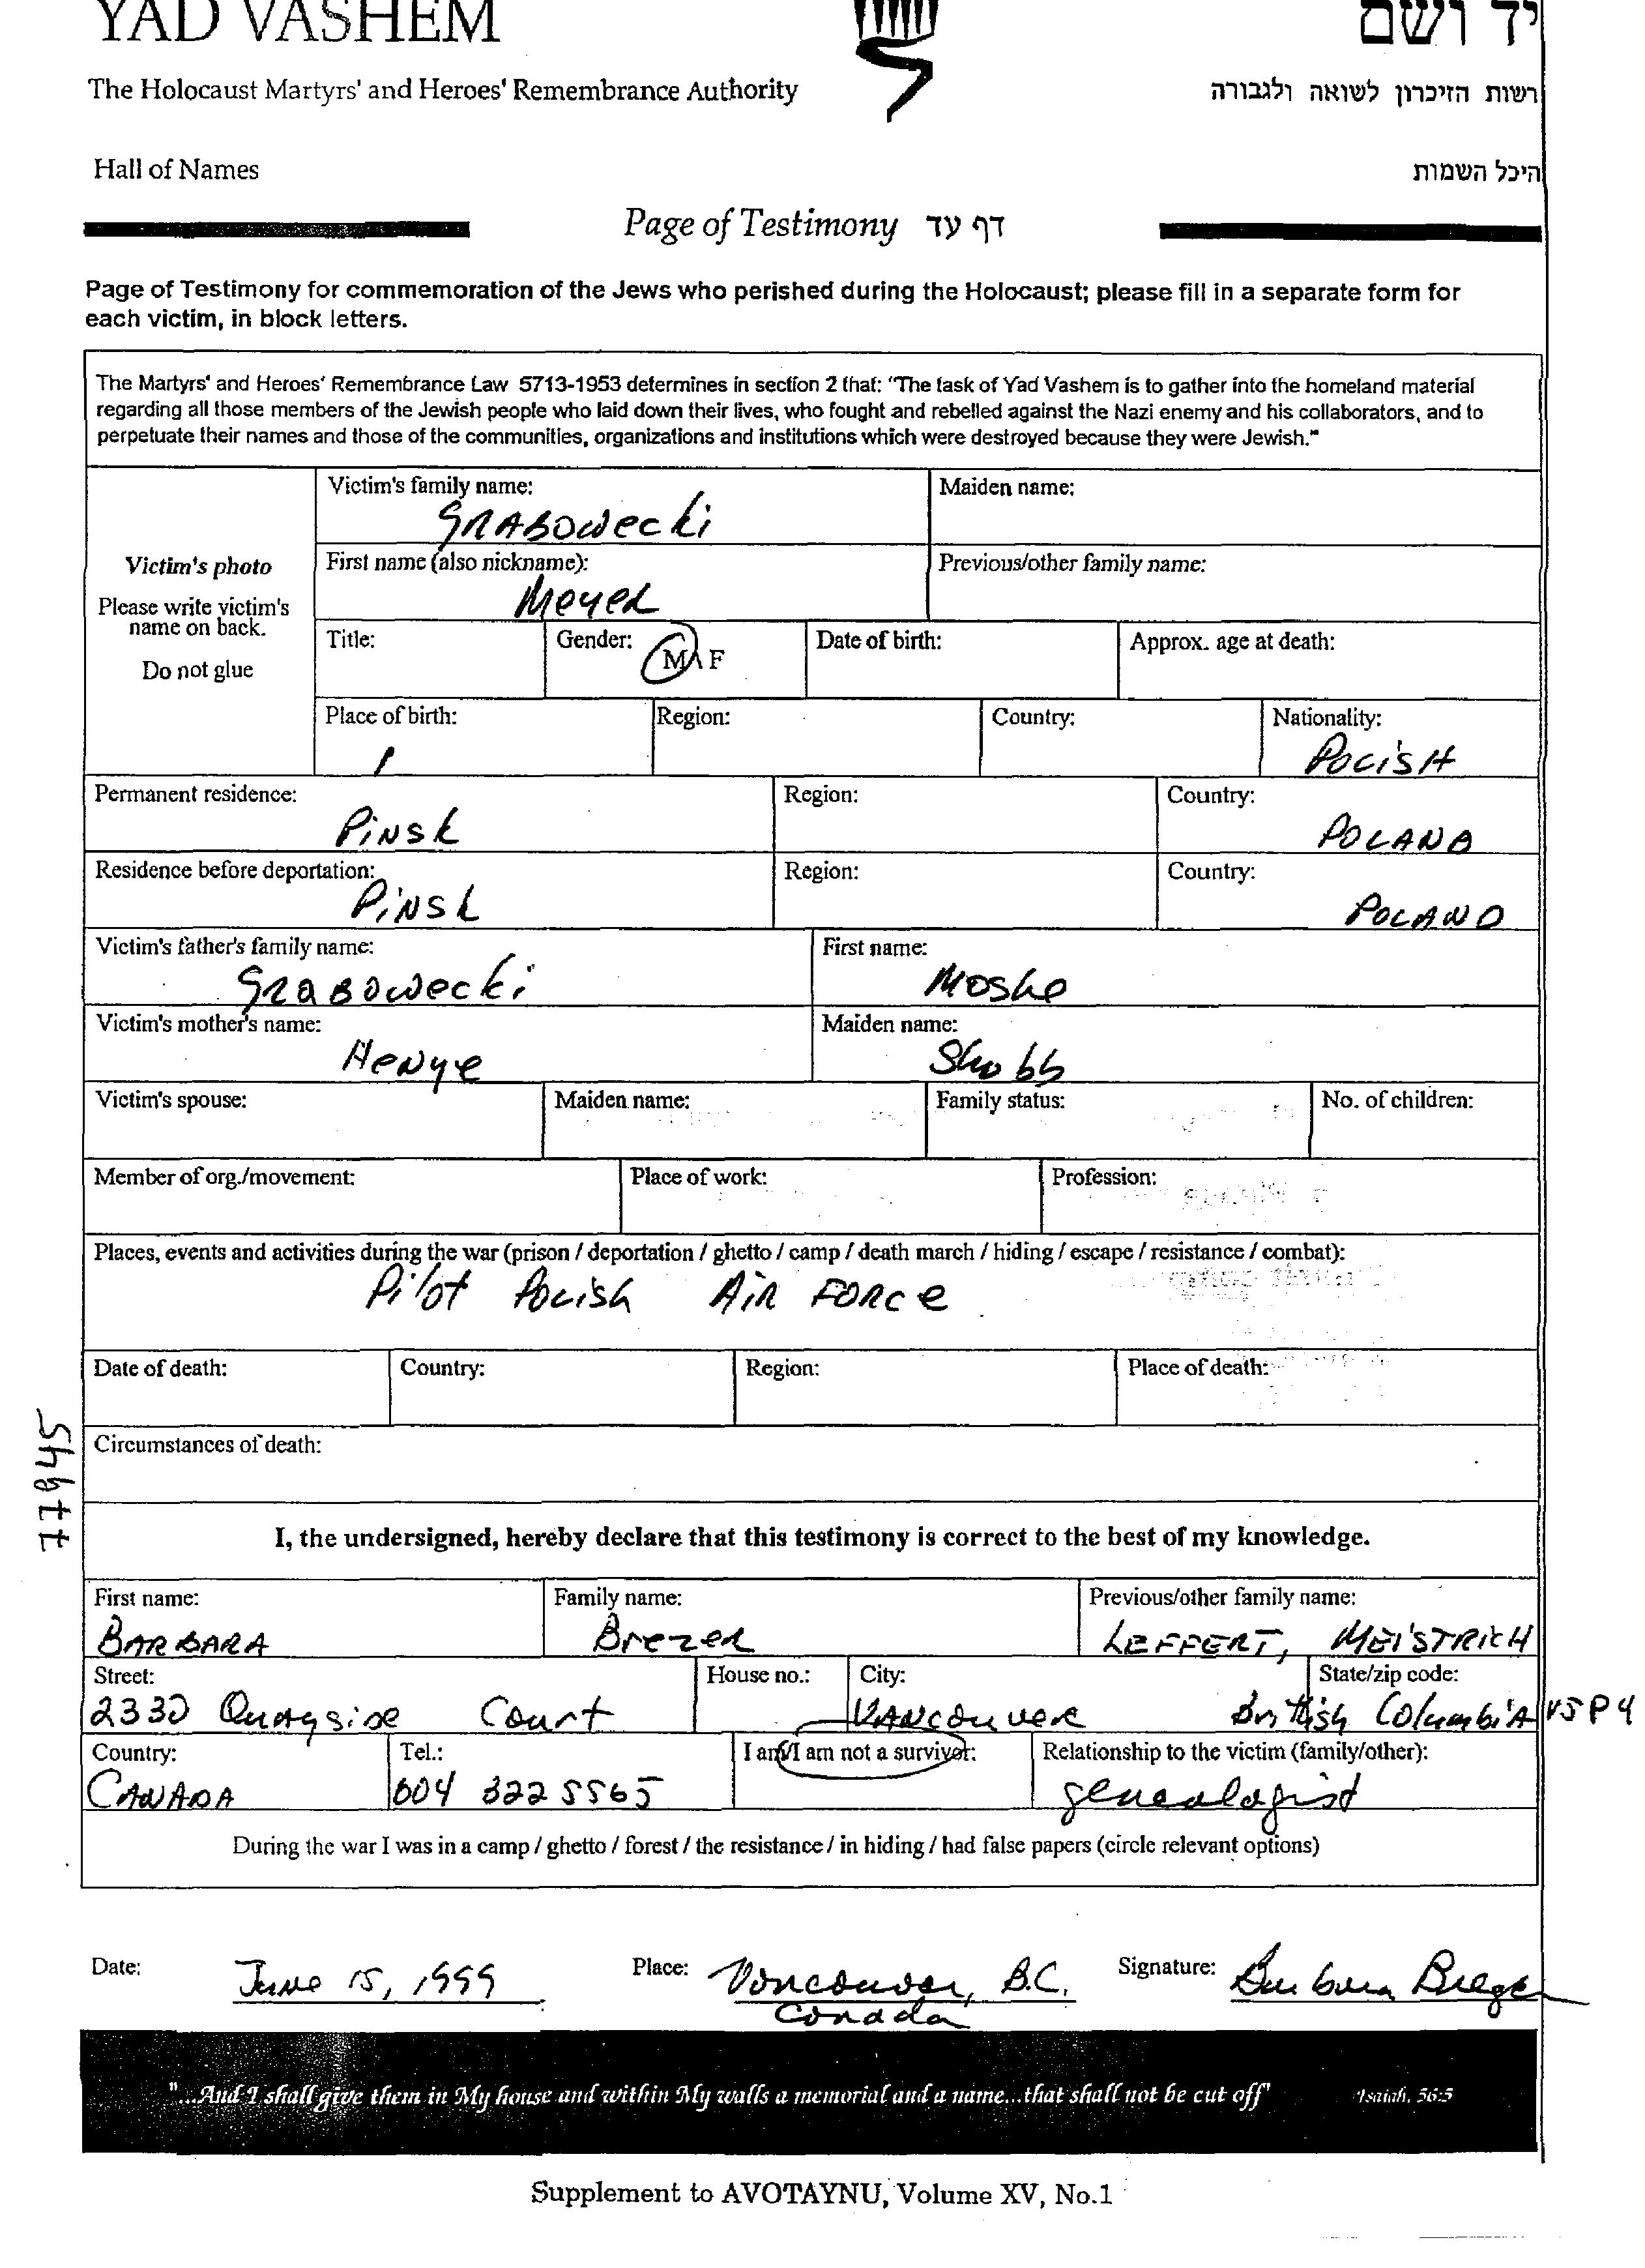 YAD VASHEM יד ושם
The Holocaust Martyrs' and Heroes' Remembrance Authority רשות הזיכרון לשואה ולגבורה
Hall of Names היכל השמות
Page of Testimony דף עד
Page of Testimony for commemoration of the Jews who perished during the Holocaust; please fill in a separate form for
each victim, in block letters.
The Martyrs' and Heroes' Remembrance Law 5713-1953 determines in section 2 that: "The task of Yad Vashem is to gather into the homeland material
regarding all those members of the Jewish people who laid down their lives, who fought and rebelled against the Nazi enemy and his collaborators, and to
perpetuate their names and those of the communities, organizations and institutions which were destroyed because they were Jewish."
Victim's photo
Please write victim's
name on back.
Do not glue
Victim's family name: Maiden name:
GRABOWecki
First name (also nickname): Previous/other family name:
MeyeR
Title: Gender: M / F Date of birth: Approx. age at death:
Place of birth: Region: Country: Nationality:
POLiSH
Permanent residence: Region: Country:
PiNSk POLAND
Residence before deportation: Region: Country:
PiNSk POLAND
Victim's father's family name: First name:
GRaBOWecki Moshe
Victim's mother's name: Maiden name:
HeNye
Victim's spouse: Maiden name: Family status: No. of children:
Member of org./movement: Place of work: Profession:
Places, events and activities during the war (prison / deportation / ghetto / camp / death march / hiding / escape / resistance / combat):
Pilot Polish AiR FORCe
Date of death: Country: Region: Place of death:
Circumstances of death:
I, the undersigned, hereby declare that this testimony is correct to the best of my knowledge.
First name: Family name: Previous/other family name:
BARBARA LEFFERT, MEISTRICH
Street: House no.: City: State/zip code:
2330 Quayside Court VANCOUVER British Columbia V5P4
Country: Tel.: I am/I am not a survivor: Relationship to the victim (family/other):
CANADA 604 322 5565 genealogist
During the war I was in a camp / ghetto / forest / the resistance / in hiding / had false papers (circle relevant options)
Date: June 15, 1999 Place: Vancouver, B.C. Signature: Barbara
Canada
"...And I shall give them in My house and within My walls a memorial and a name...that shall not be cut off" Isaiah, 56:5
Supplement to AVOTAYNU, Volume XV, No.1